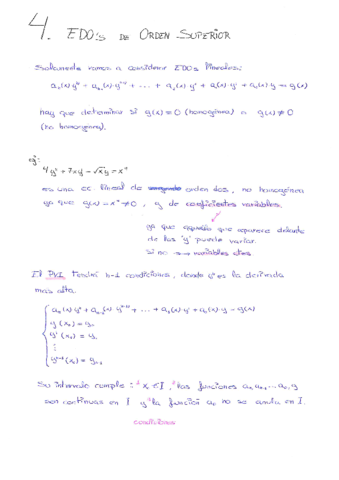 4. EDOs DE ORDEN SUPERIOR
Solamente vamos a considerar EDOs lineales:
aₙ(x) yⁿ + aₙ₋₁(x) yⁿ⁻¹ + ... + a₂(x) y'' + a₁(x) y' + a₀(x) y = g(x)
hay que determinar si g(x) = 0 (homogénea) o g(x) ≠ 0
(no homogénea).
ej:
y'' + 7xy - √x y = xⁿ
es una ec lineal de orden dos, no homogénea
ya que g(x) = xⁿ ≠ 0, y de coeficientes variables.
ya que aquello que aparece delante
de las 'y' puede variar.
Si no → variables ctes
El PVI tendrá n-1 condiciones, donde yⁿ es la derivada
mas alta.
aₙ(x) yⁿ + aₙ₋₁(x) yⁿ⁻¹ + ... + a₂(x) y'' + a₁(x) y' + a₀(x) y = g(x)
y (x₀) = y₀
y' (x₀) = y₁
⋮
yⁿ⁻¹ (x₀) = yₙ₋₁
Su intervalo cumple: ¹ x₀ ∈ I, ² las funciones aₙ, aₙ₋₁, ... a₀, g
son continuas en I y ³ la función aₙ no se anula en I.
condiciones